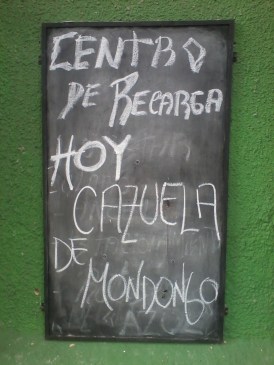 CENTRO
DE RECARGA
HOY
CAZUELA
DE
MONDONGO